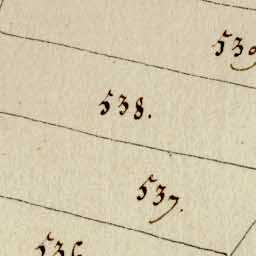 539
538.
537.
536